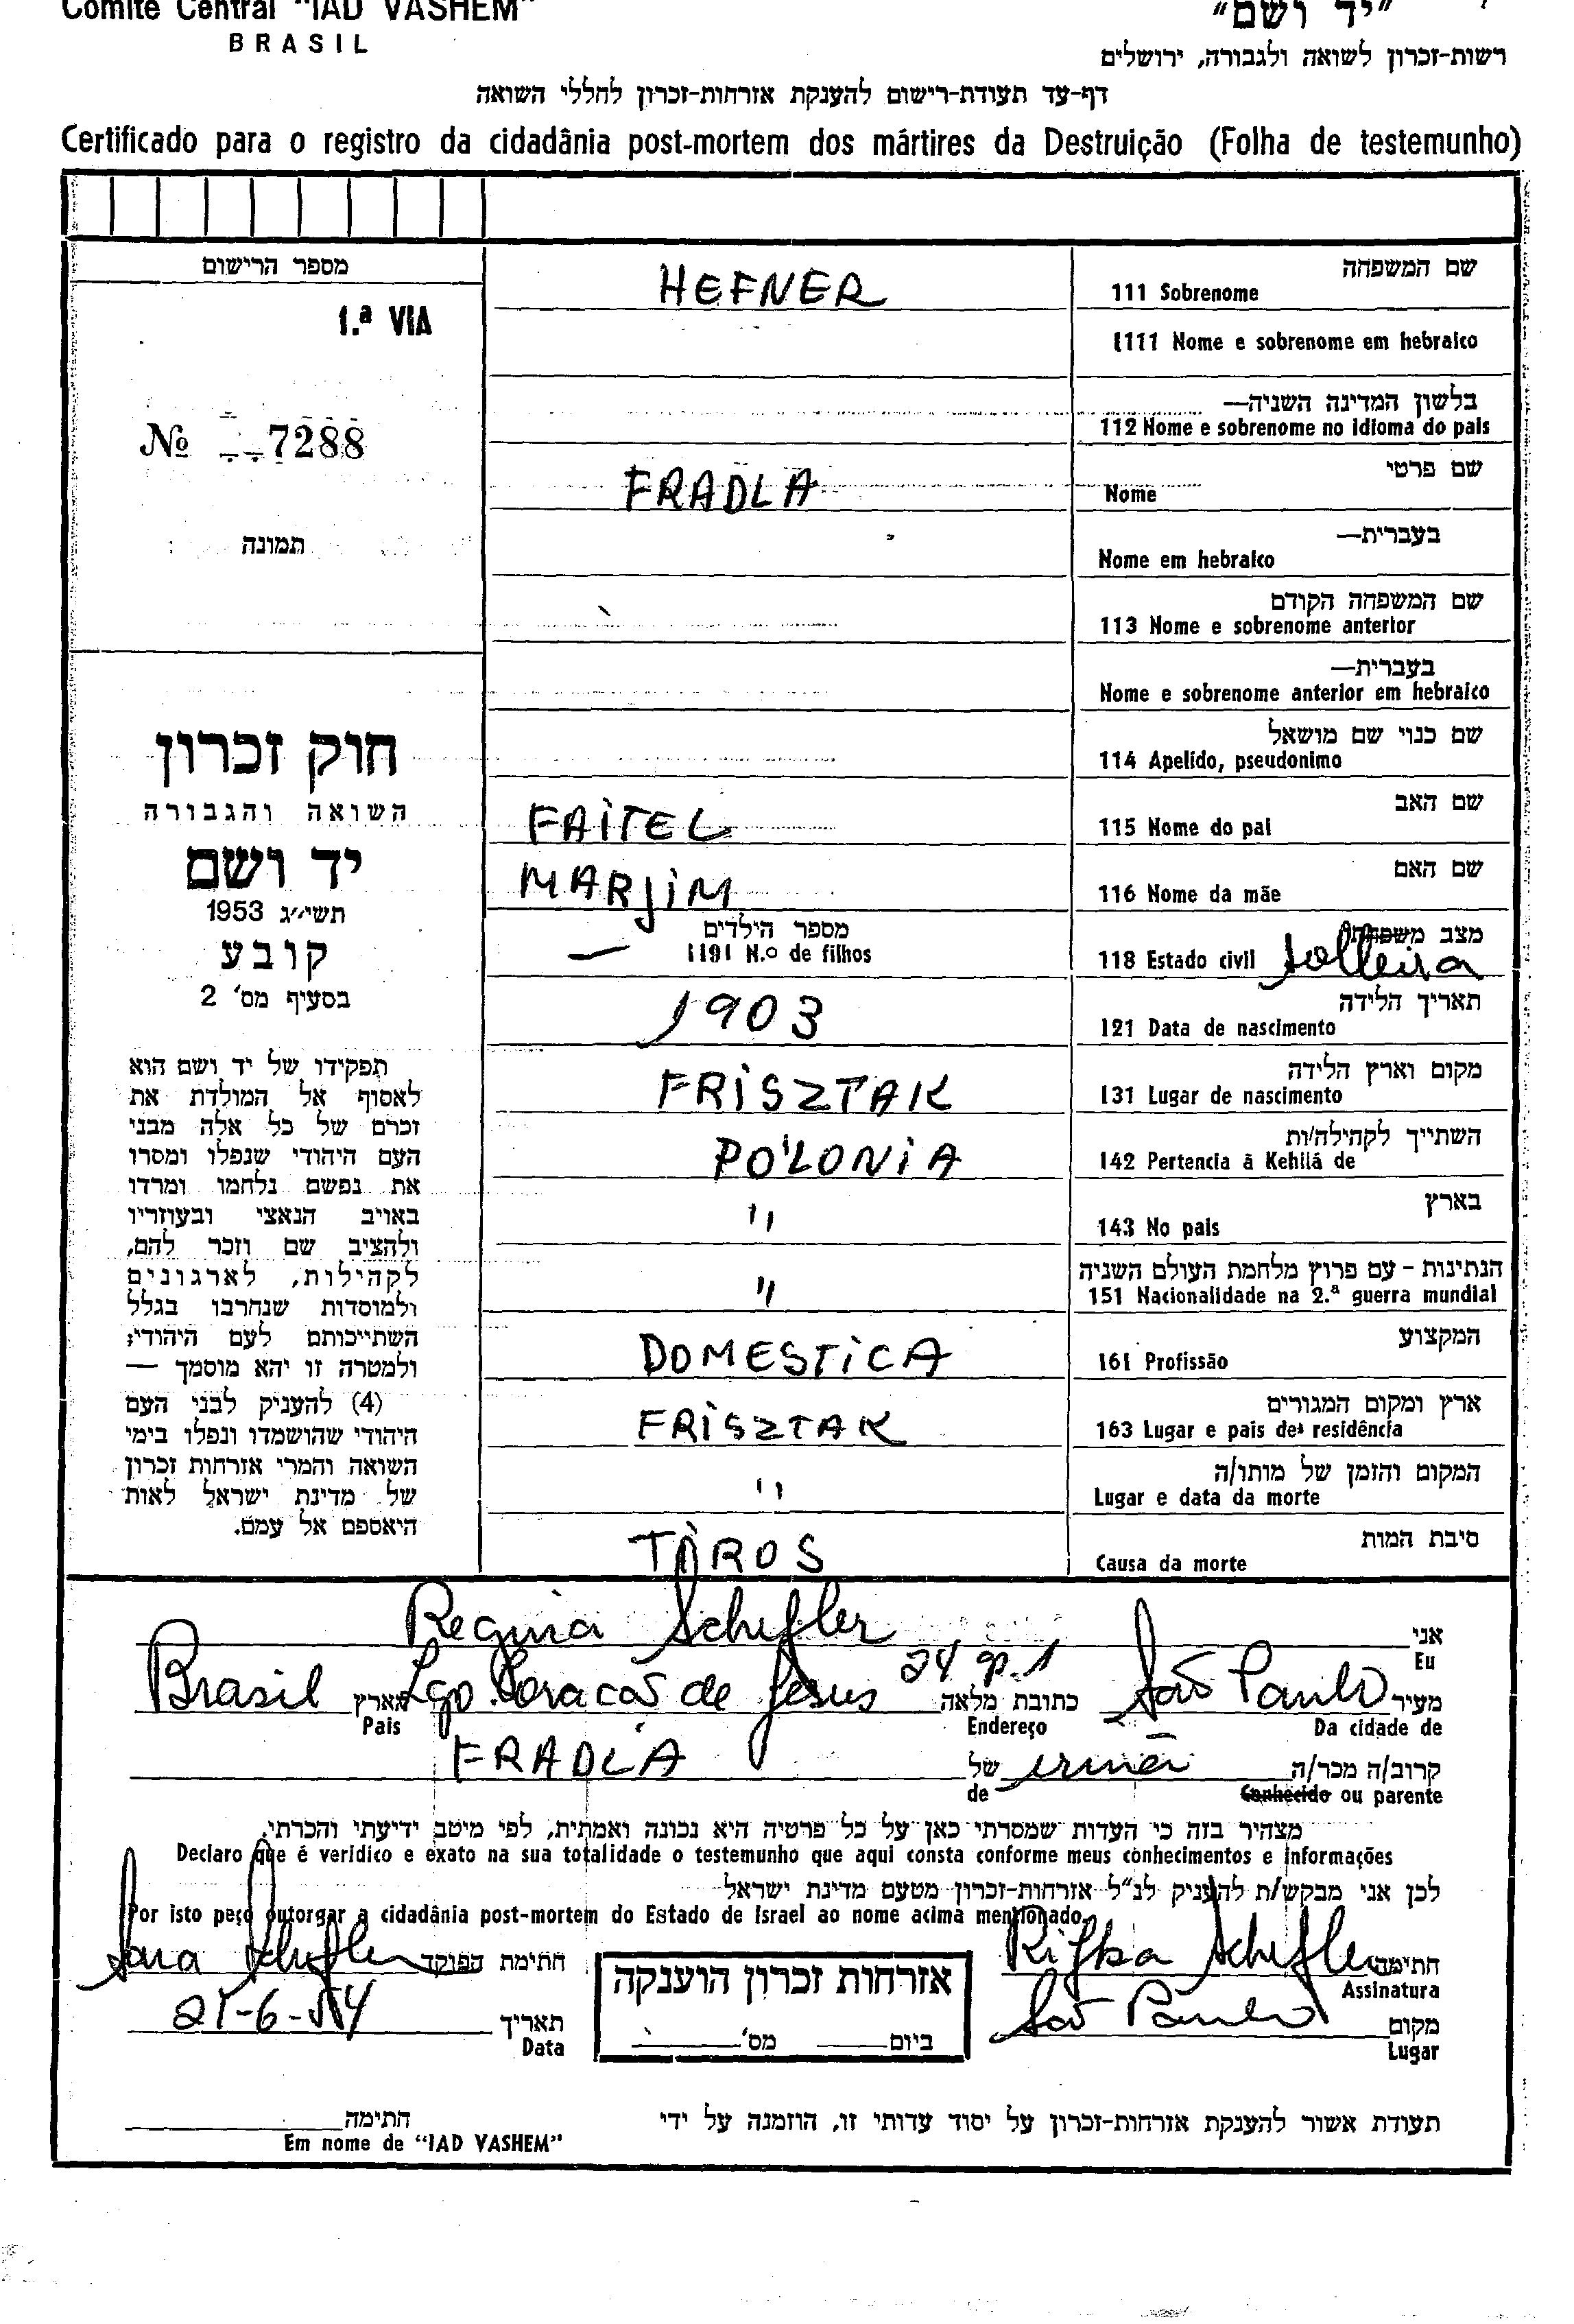 Comité Central "IAD VASHEM"
BRASIL
"יד ושם"
רשות-זכרון לשואה ולגבורה, ירושלים
דף-עד תעודת-רישום להענקת אזרחות-זכרון לחללי השואה
Certificado para o registro da cidadânia post-mortem dos mártires da Destruição (Folha de testemunho)
מספר הרישום
1.ª VIA
№ 7288
תמונה
חוק זכרון
השואה והגבורה
יד ושם
תשי"ג 1953
קובע
בסעיף מס' 2
תפקידו של יד ושם הוא
לאסוף אל המולדת את
זכרם של כל אלה מבני
העם היהודי שנפלו ומסרו
את נפשם נלחמו ומרדו
באויב הנאצי ובעוזריו
ולהציב שם וזכר להם,
לקהילות, לארגונים
ולמוסדות שנחרבו בגלל
השתייכותם לעם היהודי;
ולמטרה זו יהא מוסמך —
(4) להעניק לבני העם
היהודי שהושמדו ונפלו בימי
השואה והמרי אזרחות זכרון
של מדינת ישראל לאות
היאספם אל עמם.
שם המשפחה
111 Sobrenome HEFNER
1111 Nome e sobrenome em hebraico
בלשון המדינה השניה—
112 Nome e sobrenome no idioma do pais
שם פרטי
Nome FRADLA
בעברית—
Nome em hebraico
שם המשפחה הקודם
113 Nome e sobrenome anterior
בעברית—
Nome e sobrenome anterior em hebraico
שם כנוי שם מושאל
114 Apelido, pseudonimo
שם האב
115 Nome do pai FAITEL
שם האם
116 Nome da mãe MARJIM
מצב משפחתי
118 Estado civil solteira
מספר הילדים
1191 N.º de filhos —
תאריך הלידה
121 Data de nascimento 1903
מקום וארץ הלידה
131 Lugar de nascimento FRISZTAK
השתייך לקהילה/ות
142 Pertencia à Kehilá de POLONIA
בארץ
143 No pais "
הנתינות - עם פרוץ מלחמת העולם השניה
151 Nacionalidade na 2.ª guerra mundial "
המקצוע
161 Profissão DOMESTICA
ארץ ומקום המגורים
163 Lugar e pais de residência FRISZTAK
המקום והזמן של מותו/ה
Lugar e data da morte "
סיבת המות
Causa da morte TIROS
אני
Eu Regina Schefler
מעיר
Da cidade de São Paulo
כתובת מלאה
Endereço Lgo. Coração de Jesus 24 ap. 1
מארץ
Pais Brasil
קרוב/ה מכר/ה
Conhecido ou parente irmã
של
de FRADLA
מצהיר בזה כי העדות שמסרתי כאן על כל פרטיה היא נכונה ואמתית, לפי מיטב ידיעתי והכרתי.
Declaro que é veridico e exato na sua totalidade o testemunho que aqui consta conforme meus conhecimentos e informações
לכן אני מבקש/ת להעניק לנ"ל אזרחות-זכרון מטעם מדינת ישראל
Por isto peço outorgar a cidadânia post-mortem do Estado de Israel ao nome acima mencionado.
חתימה
Assinatura Rifka Schefler
מקום
Lugar São Paulo
אזרחות זכרון הוענקה
ביום מס'
חתימת הפוקד Sara Schefler
תאריך
Data
תעודת אשור להענקת אזרחות-זכרון על יסוד עדותי זו, הוזמנה על ידי
חתימה
Em nome de "IAD VASHEM"